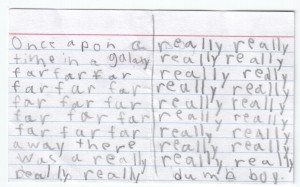 Once apon a
time in a galaxy
far far far
far far far
far far far
far far far
far far far
away there
was a really
really really
really really
really really
really really
really really
really really
really really
really really
really really
really really
dumb boy.